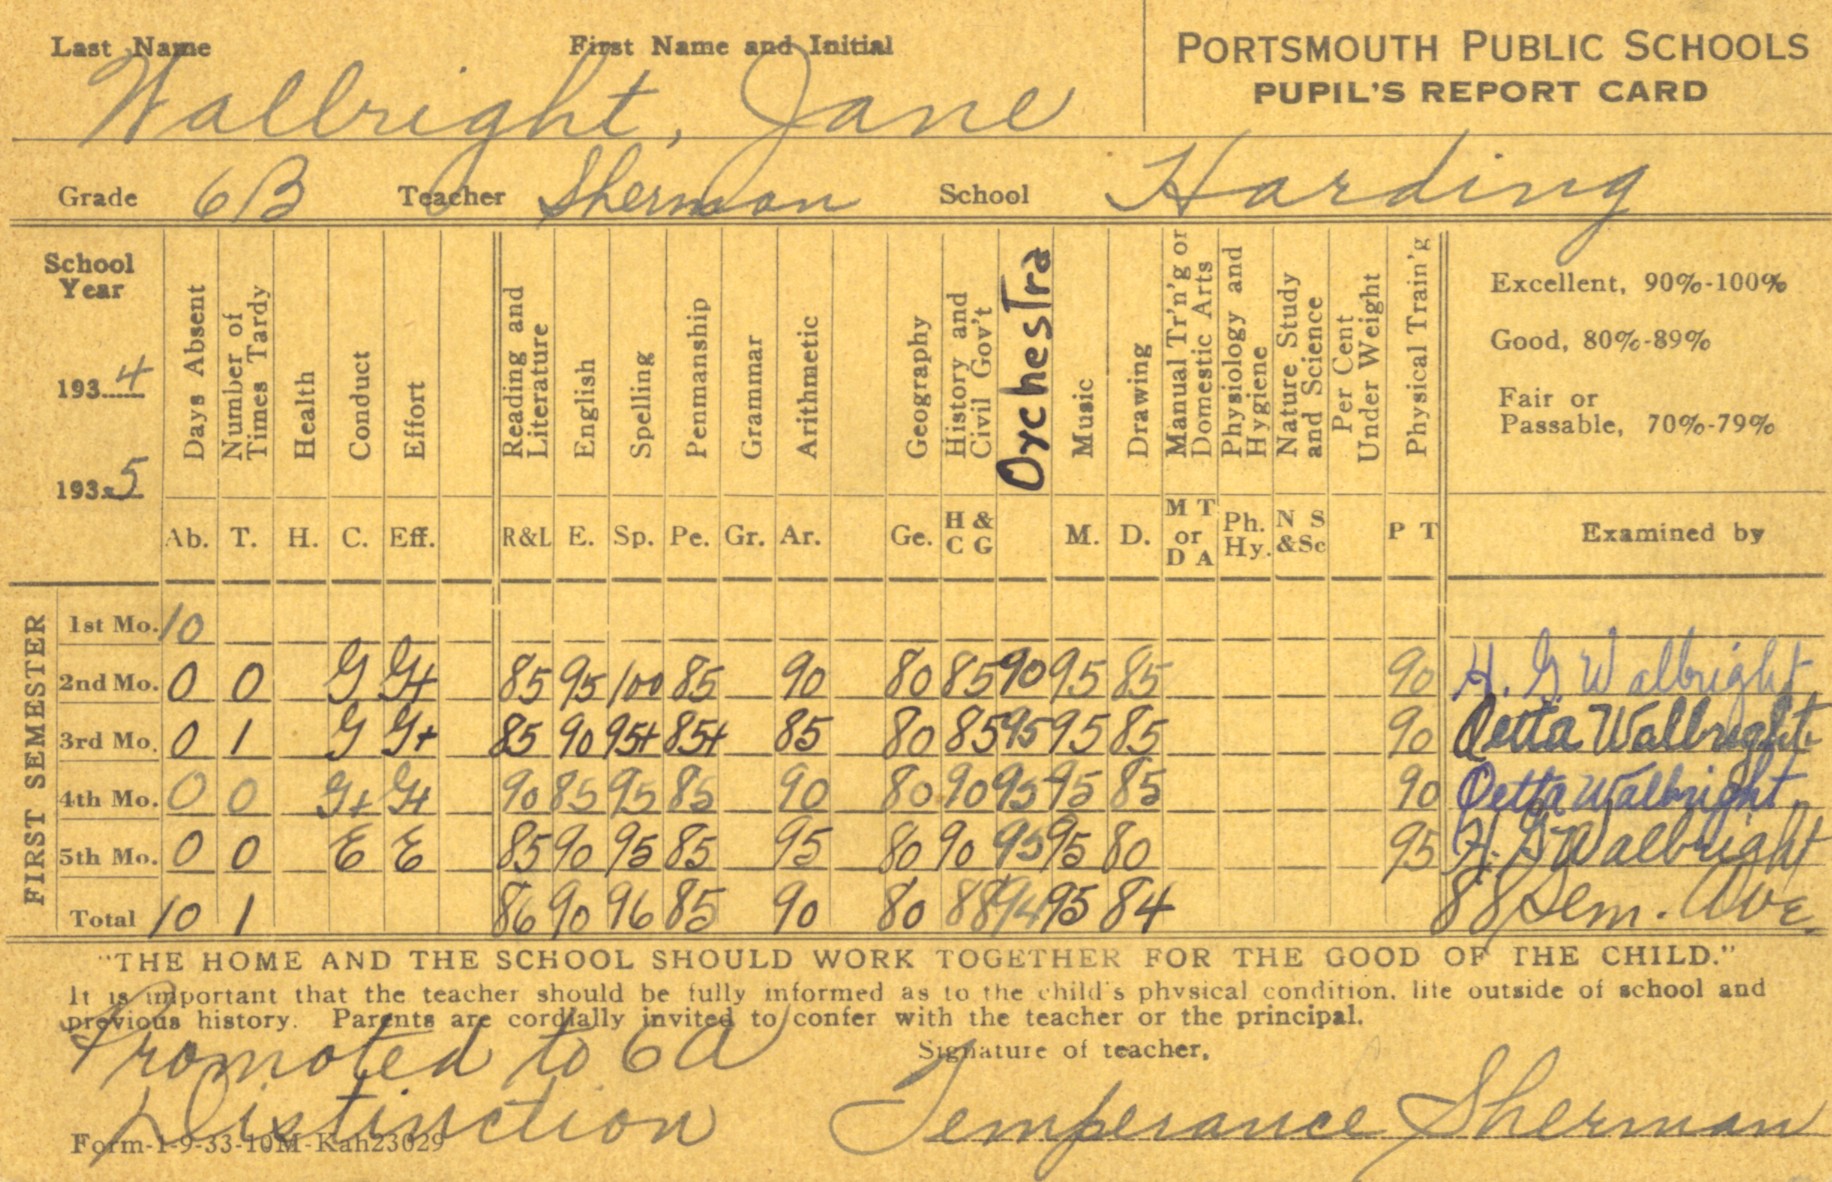 Last Name First Name and Initial
Walbright, Jane
PORTSMOUTH PUBLIC SCHOOLS
PUPIL'S REPORT CARD
Grade 6B Teacher Sherman School Harding
School Year
193 4
193 5
Days Absent
Number of Times Tardy
Health
Conduct
Effort
Reading and Literature
English
Spelling
Penmanship
Grammar
Arithmetic
Geography
History and Civil Gov't
Orchestra
Music
Drawing
Manual Tr'n'g or Domestic Arts
Physiology and Hygiene
Nature Study and Science
Per Cent Under Weight
Physical Train'g
Excellent, 90%-100%
Good, 80%-89%
Fair or
Passable, 70%-79%
Ab. T. H. C. Eff. R&L E. Sp. Pe. Gr. Ar. Ge. H & C G M. D. M T or D A Ph. Hy. N S &Sc P T Examined by
FIRST SEMESTER
1st Mo. 10
2nd Mo. 0 0 G G+ 85 95 100 85 90 80 85 90 95 85 90 H. G. Walbright
3rd Mo. 0 1 G G+ 85 90 95+ 85+ 85 80 85 95 95 85 90 Oetta Walbright
4th Mo. 0 0 G+ G+ 90 85 95 85 90 80 90 95 95 85 90 Oetta Walbright
5th Mo. 0 0 E E 85 90 95 85 95 80 90 95 95 80 95 H. G. Walbright
Total 10 1 86 90 96 85 90 80 88 94 95 84 88 Sem. Ave.
"THE HOME AND THE SCHOOL SHOULD WORK TOGETHER FOR THE GOOD OF THE CHILD."
It is important that the teacher should be fully informed as to the child's physical condition, life outside of school and
previous history. Parents are cordially invited to confer with the teacher or the principal.
Promoted to 6A
Signature of teacher,
Distinction
Temperance Sherman
Form-1-9-33-10M-Kah23029